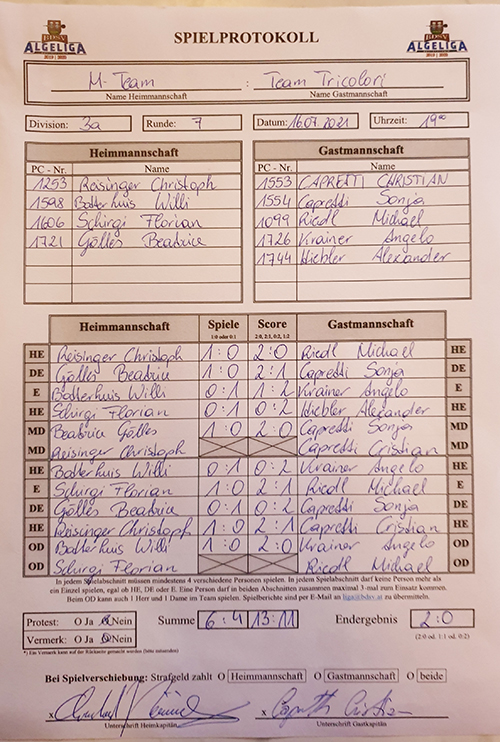 BDSV
ALGELIGA
2019 | 2021
SPIELPROTOKOLL
BDSV
ALGELIGA
2019 | 2021
M-Team : Team Tricolori
Name Heimmannschaft Name Gastmannschaft
Division: 3a Runde: 7 Datum: 16.07.2021 Uhrzeit: 19⁰⁰
Heimmannschaft Gastmannschaft
PC - Nr. Name PC - Nr. Name
1253 Reisinger Christoph 1553 CAPRETTI CHRISTIAN
1598 Batterhuis Willi 1554 Capretti Sonja
1606 Schirgi Florian 1099 Riedl Michael
1721 Gölles Beatrice 1726 Krainer Angelo
1744 Hiebler Alexander
Heimmannschaft Spiele Score Gastmannschaft
1:0 oder 0:1 2:0, 2:1, 0:2, 1:2
HE Reisinger Christoph 1:0 2:0 Riedl Michael HE
DE Gölles Beatrice 1:0 2:1 Capretti Sonja DE
E Batterhuis Willi 0:1 1:2 Krainer Angelo E
HE Schirgi Florian 0:1 0:2 Hiebler Alexander HE
MD Beatrice Gölles 1:0 2:0 Capretti Sonja MD
MD Reisinger Christoph Capretti Cristian MD
HE Batterhuis Willi 0:1 0:2 Krainer Angelo HE
E Schirgi Florian 1:0 2:1 Riedl Michael E
DE Gölles Beatrice 0:1 0:2 Capretti Sonja DE
HE Reisinger Christoph 1:0 2:1 Capretti Cristian HE
OD Batterhuis Willi 1:0 2:0 Krainer Angelo OD
OD Schirgi Florian Riedl Michael OD
In jedem Spielabschnitt müssen mindestens 4 verschiedene Personen spielen. In jedem Spielabschnitt darf keine Person mehr als
ein Einzel spielen, egal ob HE, DE oder E. Eine Person darf in beiden Abschnitten zusammen maximal 3-mal zum Einsatz kommen.
Beim OD kann auch 1 Herr und 1 Dame im Team spielen. Spielberichte sind per E-Mail an liga@bdsv.at zu übermitteln.
Protest: O Ja O Nein Summe 6:4 13:11 Endergebnis 2:0
Vermerk: O Ja O Nein (2:0 od. 1:1 od. 0:2)
*) Ein Vermerk kann auf der Rückseite gemacht werden (bitte umwenden)
Bei Spielverschiebung: Strafgeld zahlt O Heimmannschaft O Gastmannschaft O beide
x x Capretti Cristian
Unterschrift Heimkapitän Unterschrift Gastkapitän